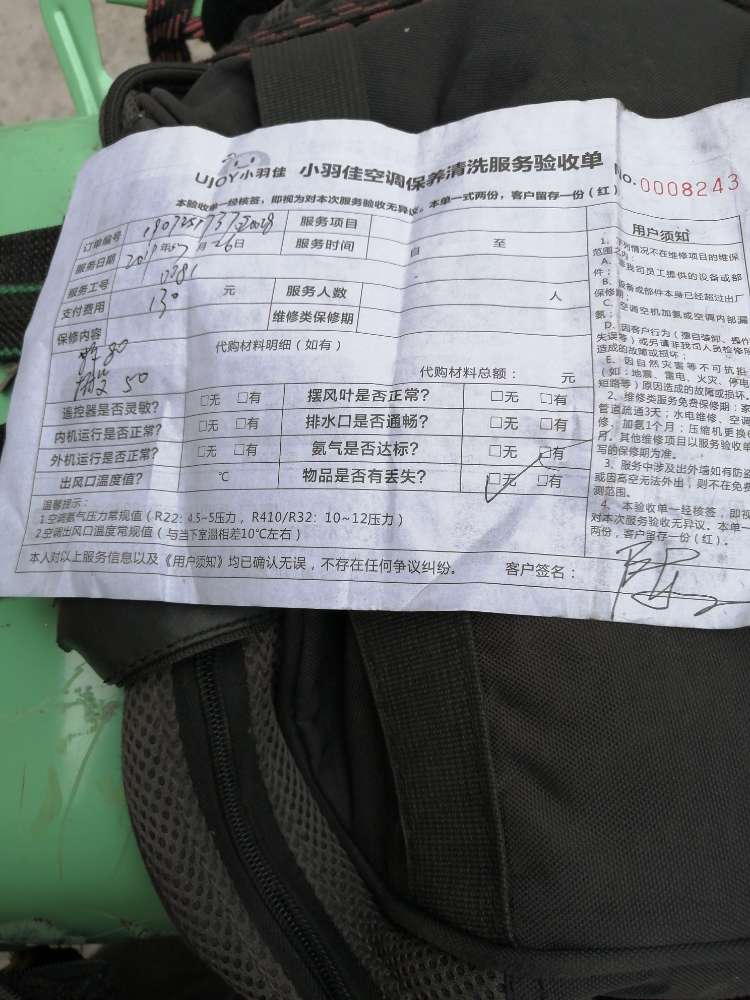 UJOY小羽佳 小羽佳空调保养清洗服务验收单 No.0008243
本验收单一经核签，即视为对本次服务验收无异议。本单一式两份，客户留存一份（红）
订单编号 服务项目
服务日期 年07月26日 服务时间 自 至
服务工号 0081
支付费用 130 元 服务人数 人
维修类保修期
保修内容
代购材料明细（如有）
80
50
代购材料总额： 元
遥控器是否灵敏？ □无 □有 摆风叶是否正常？ □无 □有
内机运行是否正常？ □无 □有 排水口是否通畅？ □无 □有
外机运行是否正常？ □无 □有 氨气是否达标？ □无 □有
出风口温度值？ ℃ 物品是否有丢失？ □无 □有
温馨提示：
1.空调氨气压力常规值（R22：4.5~5压力，R410/R32：10~12压力）
2.空调出风口温度常规值（与当下室温相差10℃左右）
本人对以上服务信息以及《用户须知》均已确认无误，不存在任何争议纠纷。 客户签名：
用户须知
1、下列情况不在维修项目的维保
范围之内：
A、非我司员工提供的设备或部
件；
B、设备或部件本身已经超过出厂
保修期；
C、空调空机加氨或空调内部漏
氨；
D、因客户行为（擅自装卸、操作
失误等）或另请非我司人员检修所
造成的故障或损坏；
E、因自然灾害等不可抗拒
（如：地震、雷电、火灾、停电
短路等）原因造成的故障或损坏。
2、维修类服务免费保修期：家
管道疏通3天；水电维修、空调
修、加氨1个月；压缩机更换
月。其他维修项目以服务验收单
写的保修期为准。
3、服务中涉及出外墙如有防盗
或因高空无法外出，则不在免费
测范围。
4、本验收单一经核签，即视
对本次服务验收无异议。本单一
两份，客户留存一份（红）。